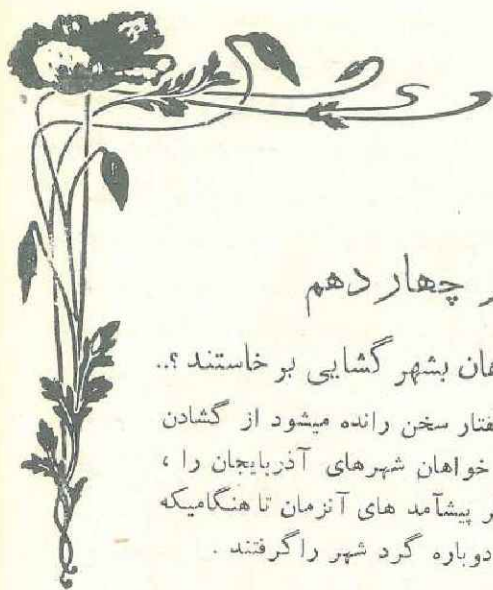 ر چهاردهم
هان بشهر گشایی بر خاستند ؟..
فتار سخن رانده میشود از گشادن
خواهان شهرهای آذربایجان را ،
ر پیشآمد های آنزمان تا هنگامیکه
دوباره گرد شهر را گرفتند .